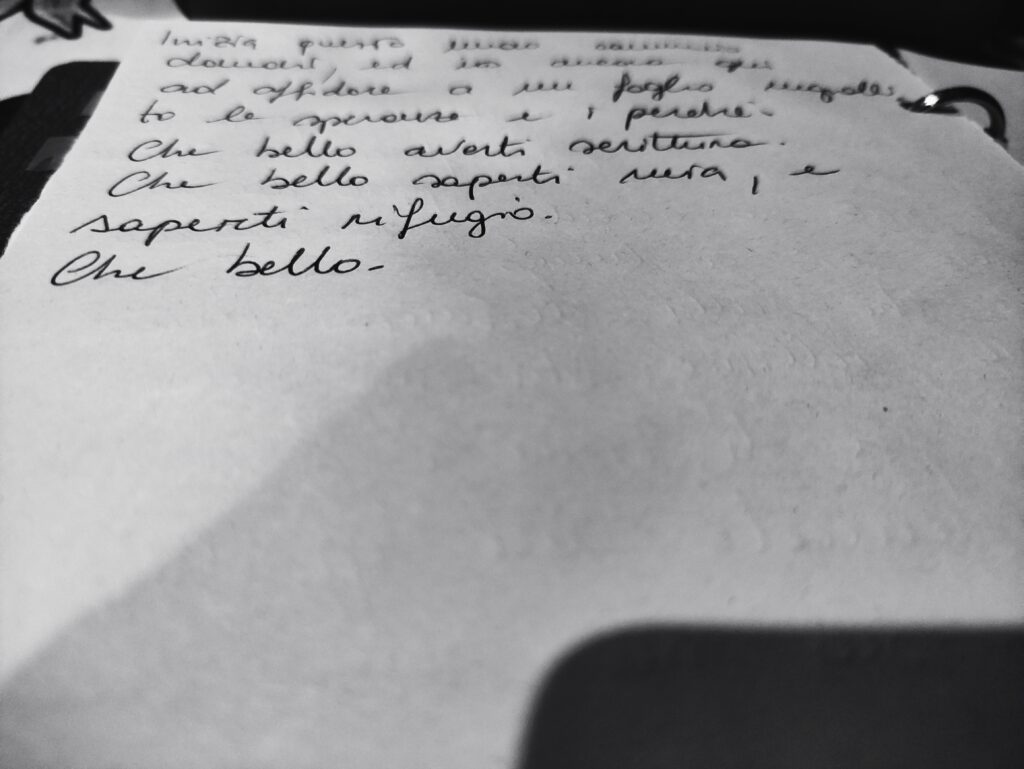 Inizia questo nuovo cammino
domani, ed io ancora qui
ad affidare a un foglio
to le speranze e i perché.
Che bello averti scrittura.
Che bello saperti mia, e
saperti rifugio.
Che bello.